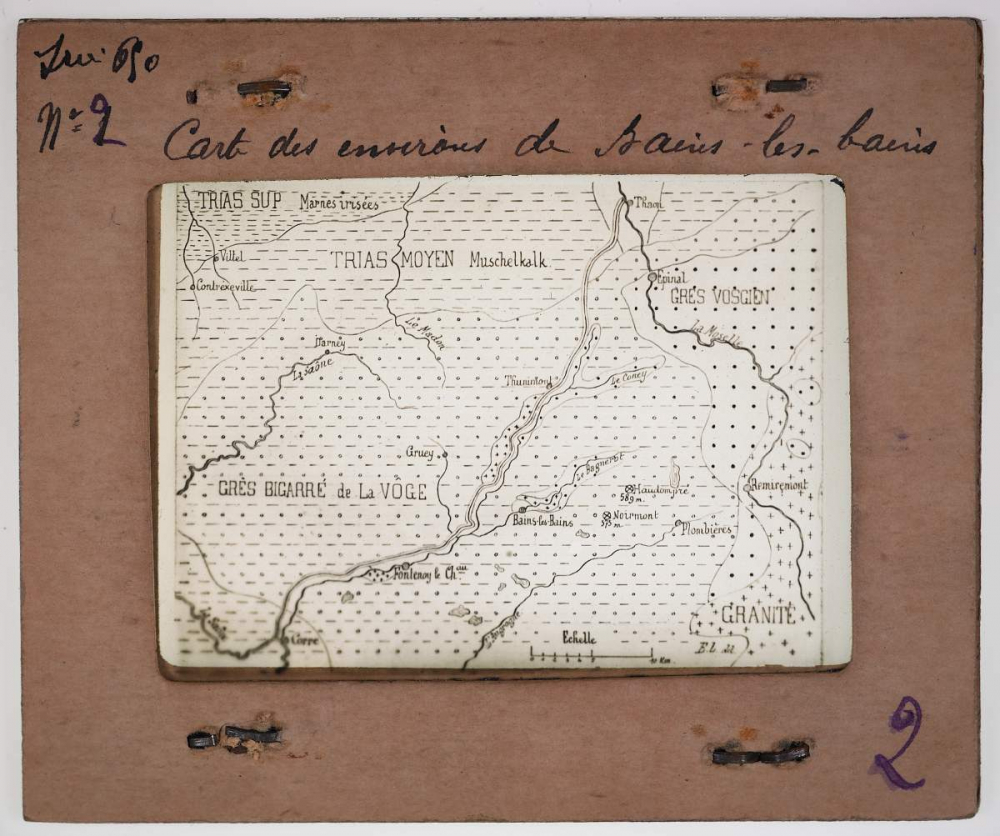 650
Nº 2
Carte des environs de Bains-les-bains
TRIAS SUP Marnes irisées
Thaon
Vittel
TRIAS MOYEN Muschelkalk
Epinal
Contrexeville
GRÈS VOSGIEN
Le Madon
La Moselle
Darney
La Saône
Thunimont
Le Coney
Gruey
Le Bagnerot
GRÈS BIGARRÉ de La VÔGE
Haudompré
589 m.
Remiremont
Bains-les-Bains
Noirmont
575 m.
Plombières
Fontenoy le Ch.au
GRANITE
Corre
Echelle
10 Km.
2